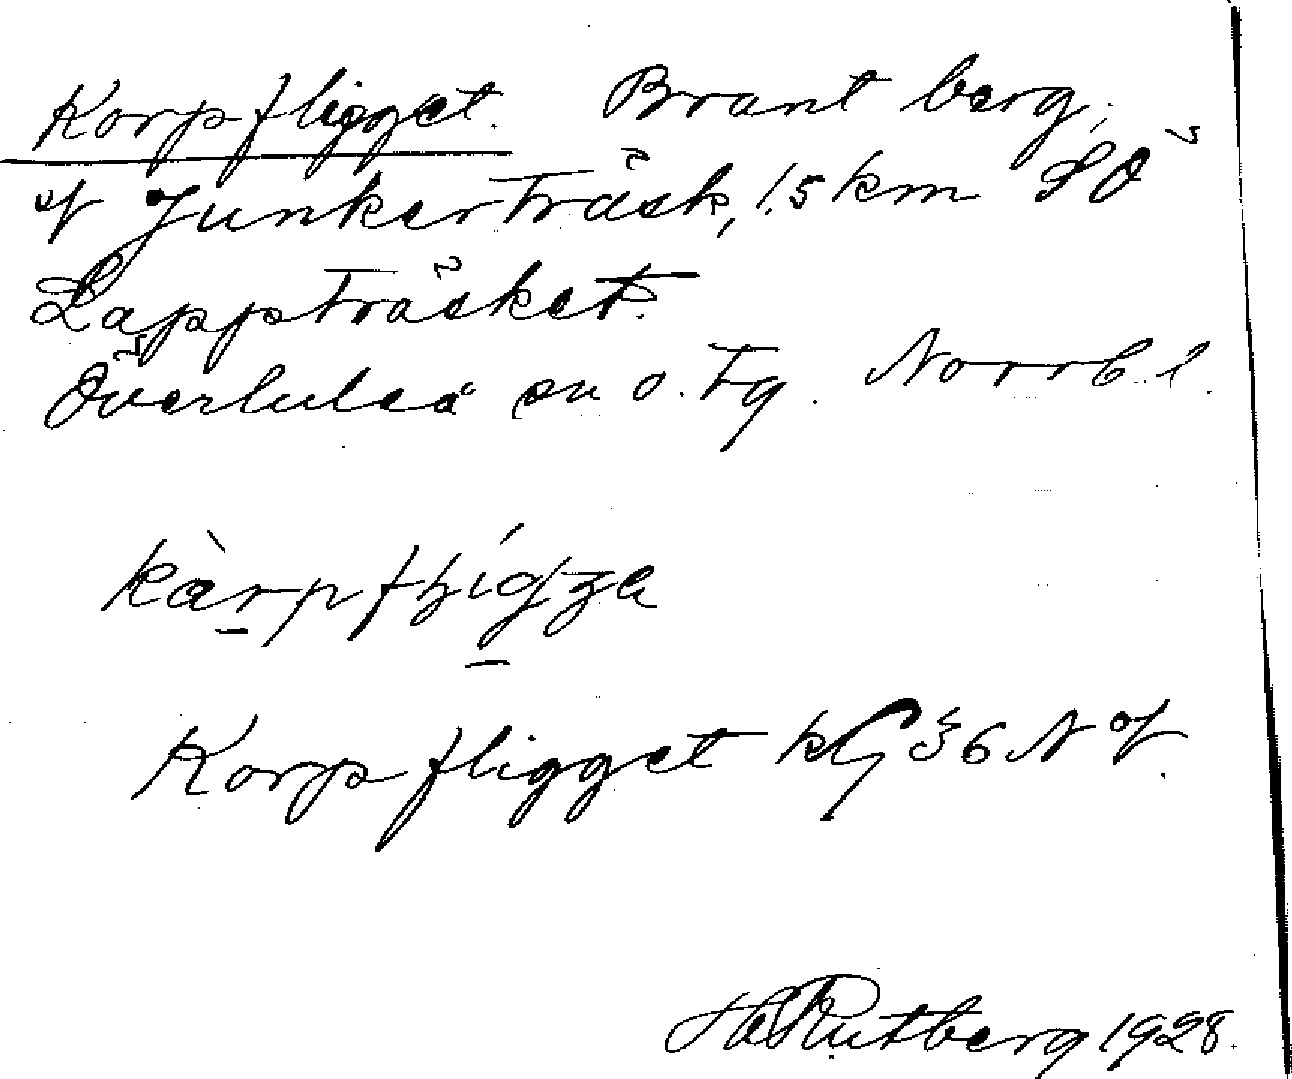 Korpfligget. Brant berg,
af Junkerträsk, 1.5 km SÖ
Lappträsket.
Överluleå sn o. tg. Norrb. l.
Korpfligget kG 36 N of
H Rutberg 1928.